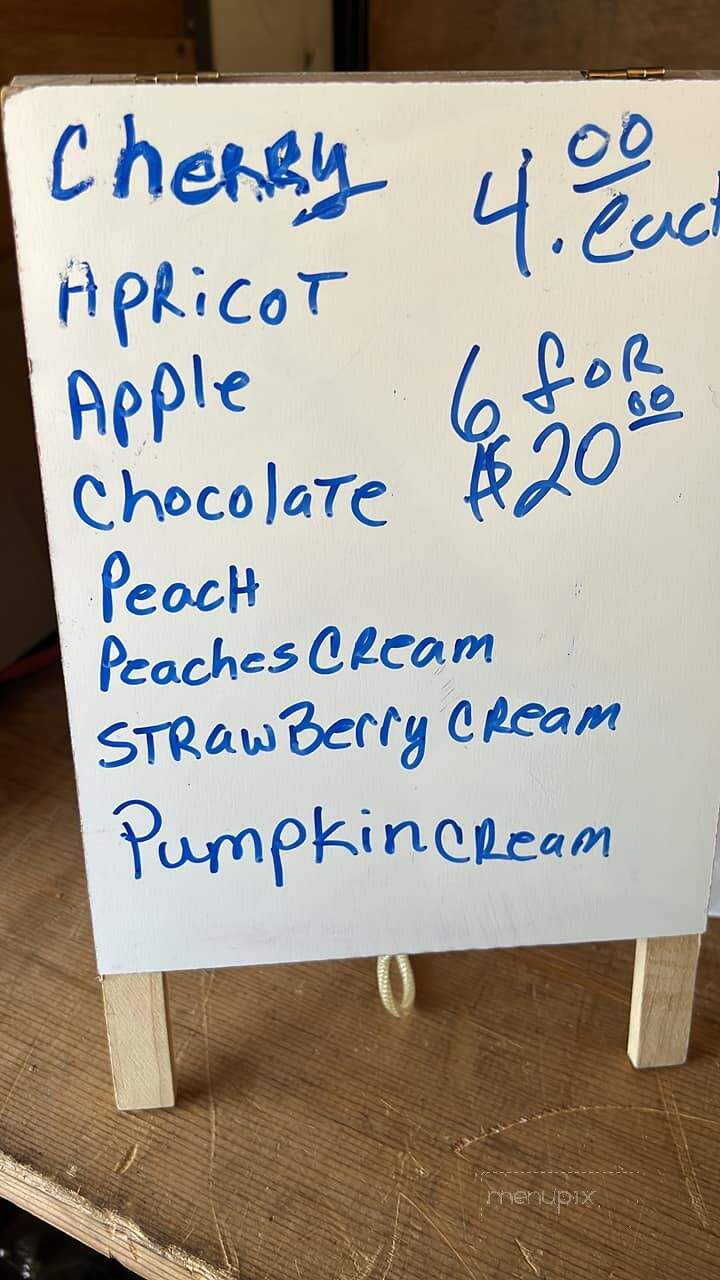 Cherry
4.00 each
Apricot
Apple
6 for
$20 00
Chocolate
Peach
Peaches Cream
Strawberry Cream
Pumpkin Cream
menupix